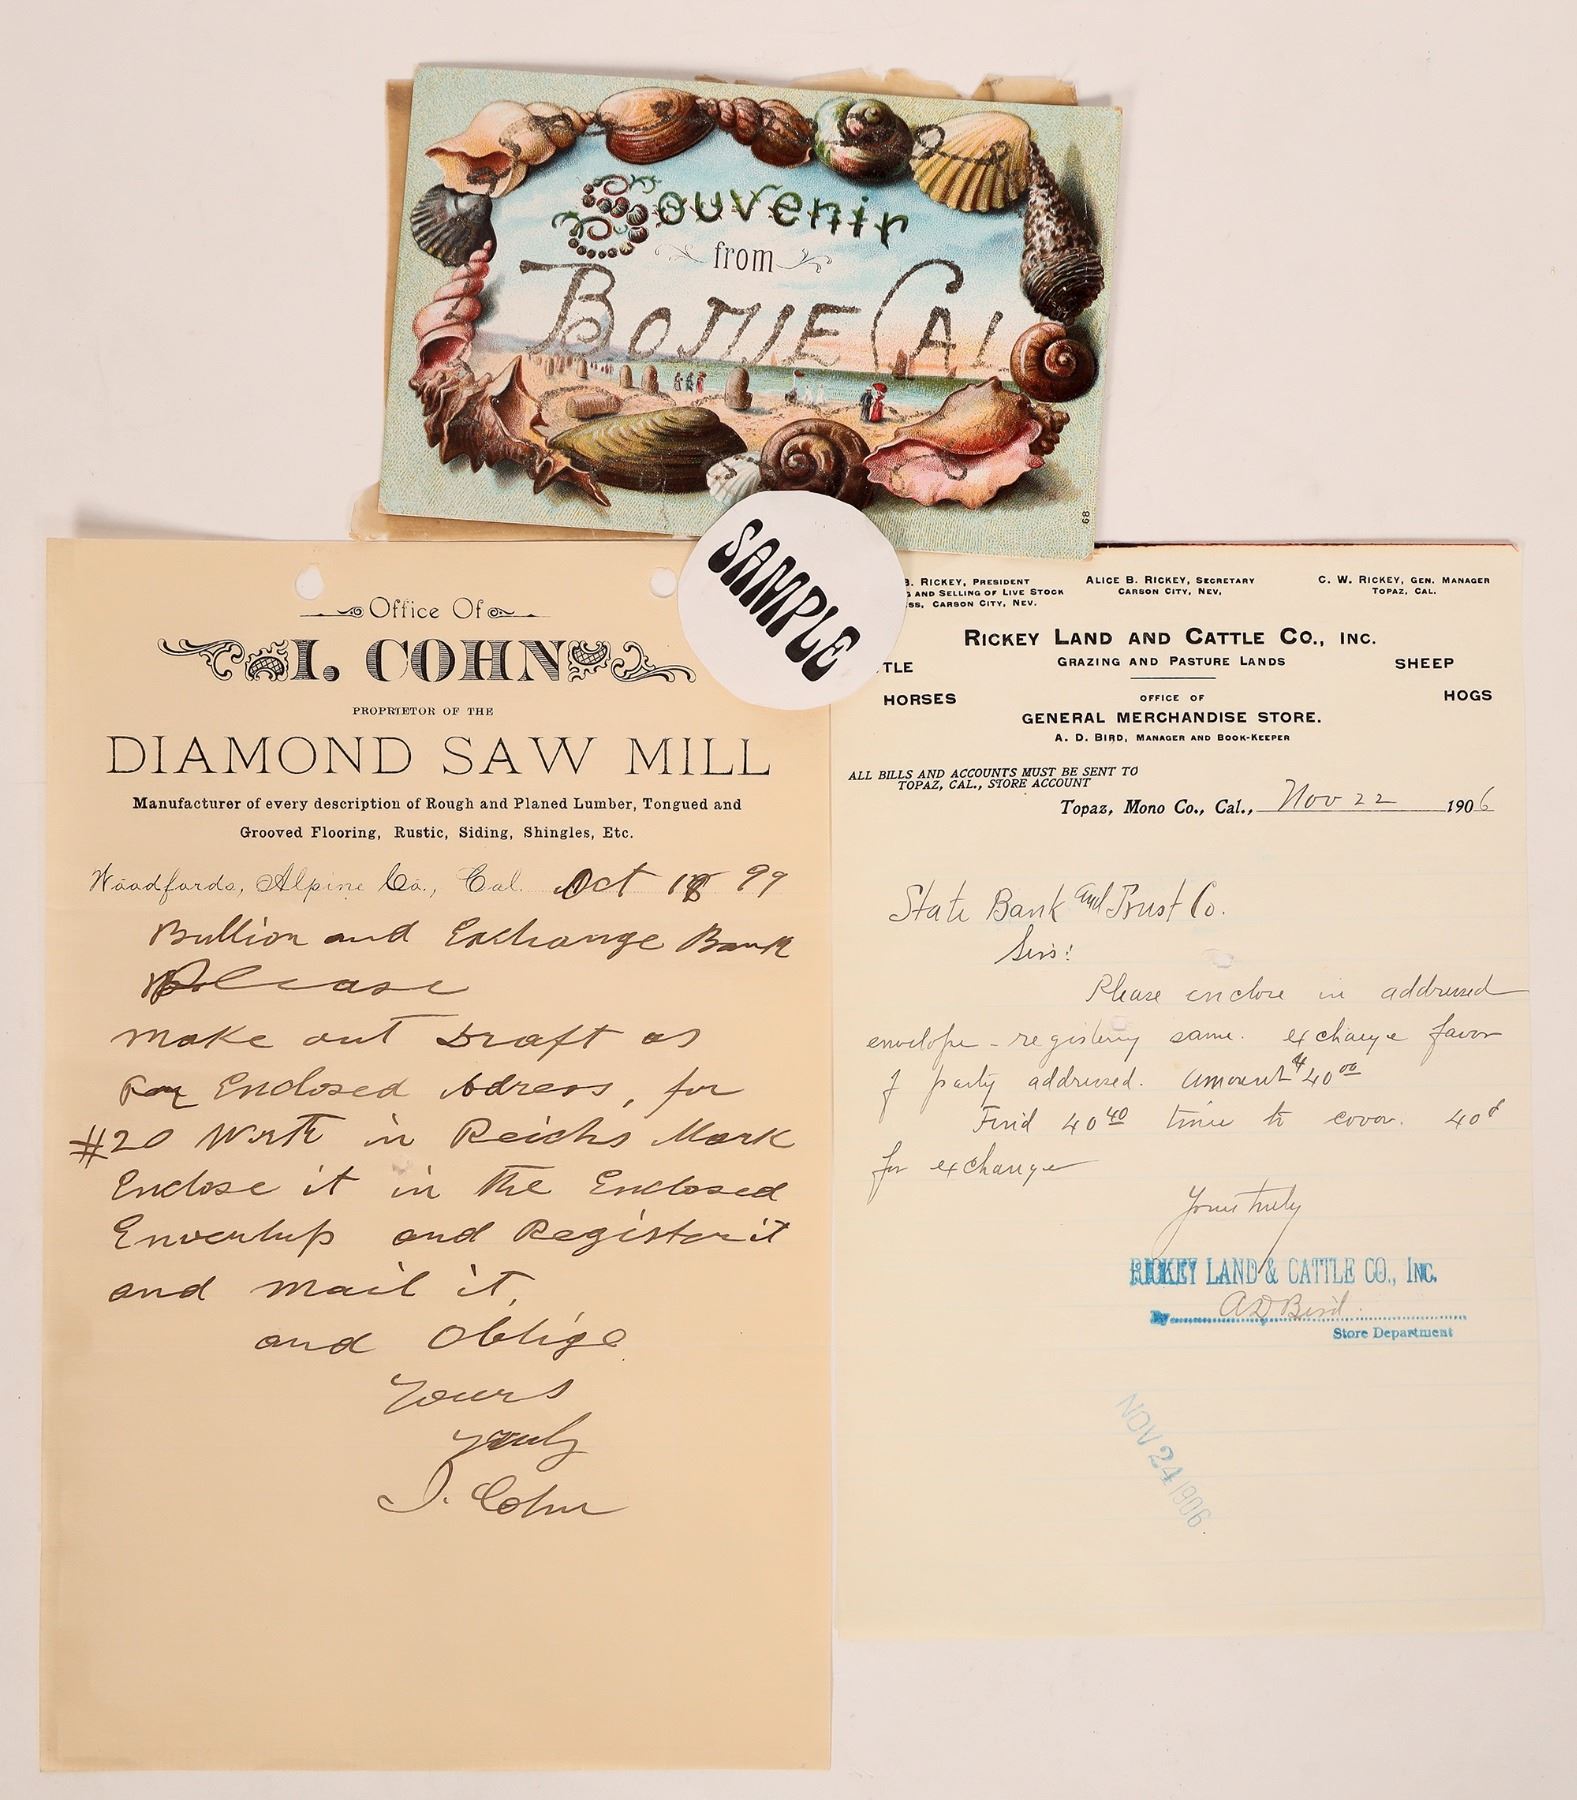 Souvenir
from
BODIE CAL
68
SAMPLE
Office Of
I. COHN
PROPRIETOR OF THE
DIAMOND SAW MILL
Manufacturer of every description of Rough and Planed Lumber, Tongued and
Grooved Flooring, Rustic, Siding, Shingles, Etc.
Woodfords, Alpine Co., Cal. Oct 18 99
Bullion and Exchange Bank
Please
make out Draft as
Enclosed Adress, for
#20 Worth in Reichs Mark
Enclose it in the Enclosed
Envenlup and Register it
and mail it,
and Oblige
Yours
Truly
I. Cohn
B. RICKEY, PRESIDENT
G AND SELLING OF LIVE STOCK
SS, CARSON CITY, NEV.
ALICE B. RICKEY, SECRETARY
CARSON CITY, NEV,
C. W. RICKEY, GEN. MANAGER
TOPAZ, CAL.
RICKEY LAND AND CATTLE CO., INC.
GRAZING AND PASTURE LANDS
TLE
SHEEP
HORSES
HOGS
OFFICE OF
GENERAL MERCHANDISE STORE.
A. D. BIRD, MANAGER AND BOOK-KEEPER
ALL BILLS AND ACCOUNTS MUST BE SENT TO
TOPAZ, CAL., STORE ACCOUNT
Topaz, Mono Co., Cal., Nov 22 1906
State Bank and Trust Co.
Sirs:
Please enclose in addressed
envelope - registering same. exchange favor
of party addressed. Amount $40.00
Find 40 40 to cover. 40¢
for exchange
Yours truly
RICKEY LAND & CATTLE CO., INC.
By A D Bird.
Store Department
NOV 24 1906